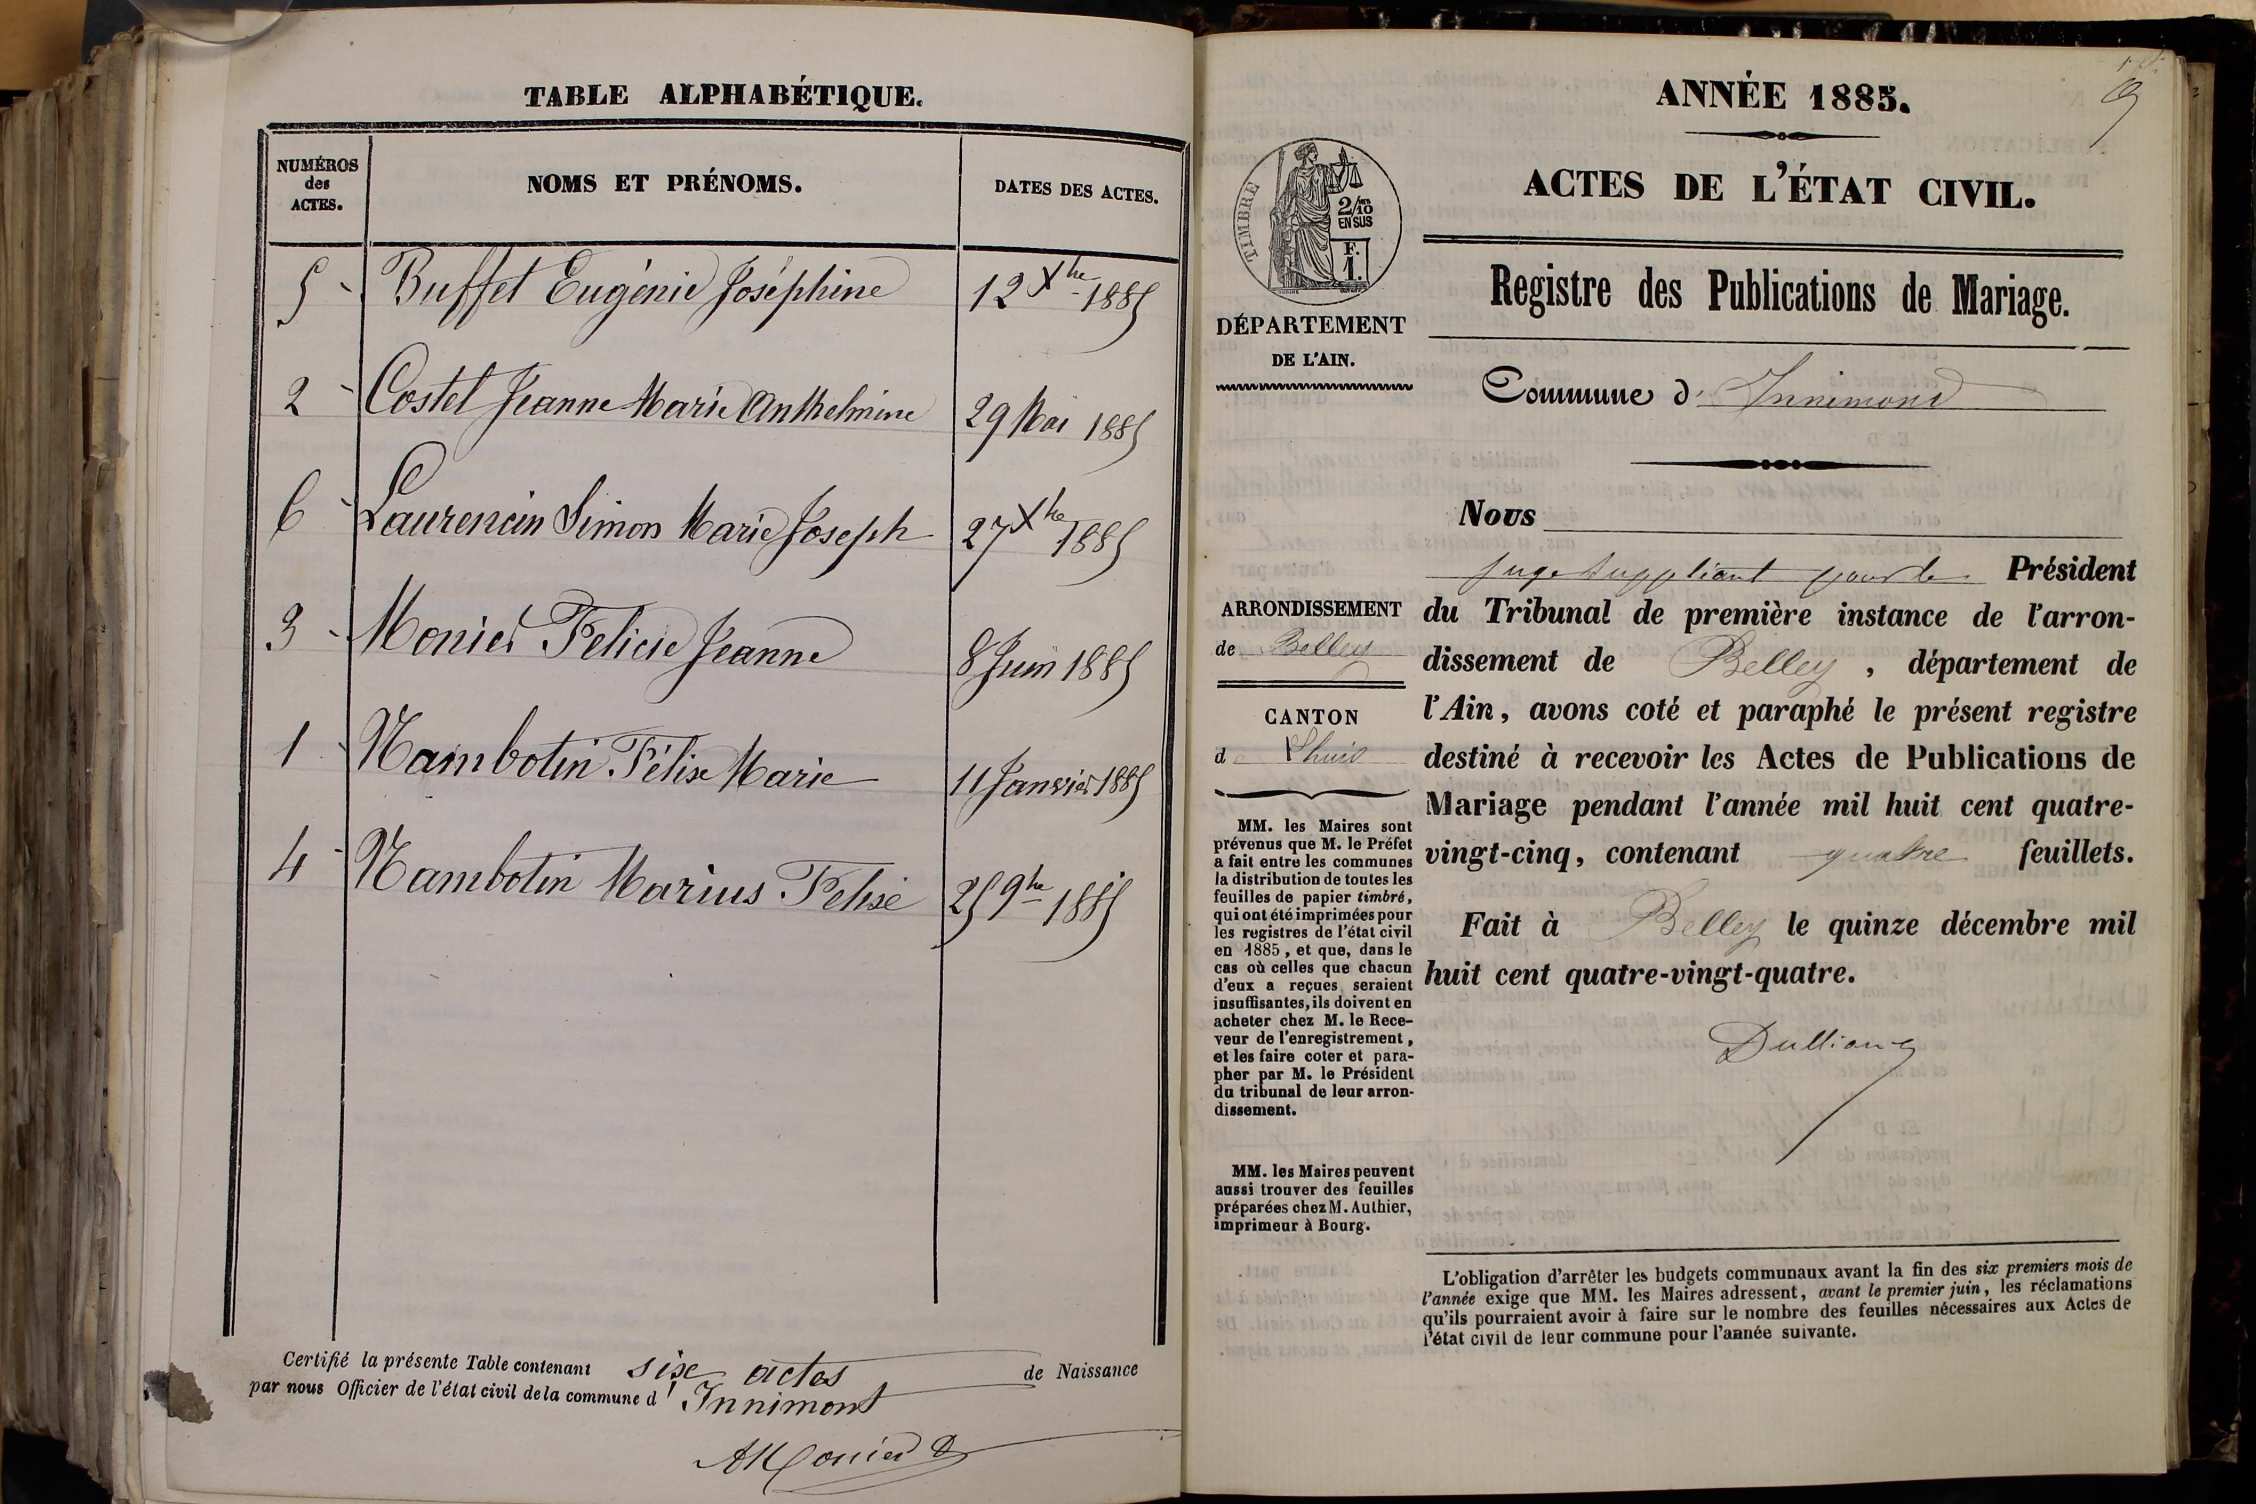 TABLE ALPHABÉTIQUE.
NUMÉROS
des
ACTES.
NOMS ET PRÉNOMS.
DATES DES ACTES.
5 Buffet Eugénie Joséphine 12 Xbre 1885
2 Costel Jeanne Marie Anthelmine 29 Mai 1885
6 Laurencin Simon Marie Joseph 27 Xbre 1885
3 Monier Felicie Jeanne 8 Juin 1885
1 Nambotin Félix Marie 11 Janvier 1885
4 Nambotin Marius Felix 25 9bre 1885
Certifié la présente Table contenant six actes de Naissance
par nous Officier de l'état civil de la commune d'Innimont
AMonier
ANNÉE 1885.
ACTES DE L'ÉTAT CIVIL.
TIMBRE
2/10
EN SUS
F.
1.
DÉPARTEMENT
DE L'AIN.
Registre des Publications de Mariage.
Commune d'Innimond
ARRONDISSEMENT
de Belley
CANTON
d
MM. les Maires sont
prévenus que M. le Préfet
a fait entre les communes
la distribution de toutes les
feuilles de papier timbré,
qui ont été imprimées pour
les registres de l'état civil
en 1885, et que, dans le
cas où celles que chacun
d'eux a reçues seraient
insuffisantes, ils doivent en
acheter chez M. le Rece-
veur de l'enregistrement,
et les faire coter et para-
pher par M. le Président
du tribunal de leur arron-
dissement.
MM. les Maires peuvent
aussi trouver des feuilles
préparées chez M. Authier,
imprimeur à Bourg.
Nous
juge suppléant pour le Président
du Tribunal de première instance de l'arron-
dissement de Belley, département de
l'Ain, avons coté et paraphé le présent registre
destiné à recevoir les Actes de Publications de
Mariage pendant l'année mil huit cent quatre-
vingt-cinq, contenant quatre feuillets.
Fait à Belley le quinze décembre mil
huit cent quatre-vingt-quatre.
L'obligation d'arrêter les budgets communaux avant la fin des six premiers mois de
l'année exige que MM. les Maires adressent, avant le premier juin, les réclamations
qu'ils pourraient avoir à faire sur le nombre des feuilles nécessaires aux Actes de
l'état civil de leur commune pour l'année suivante.